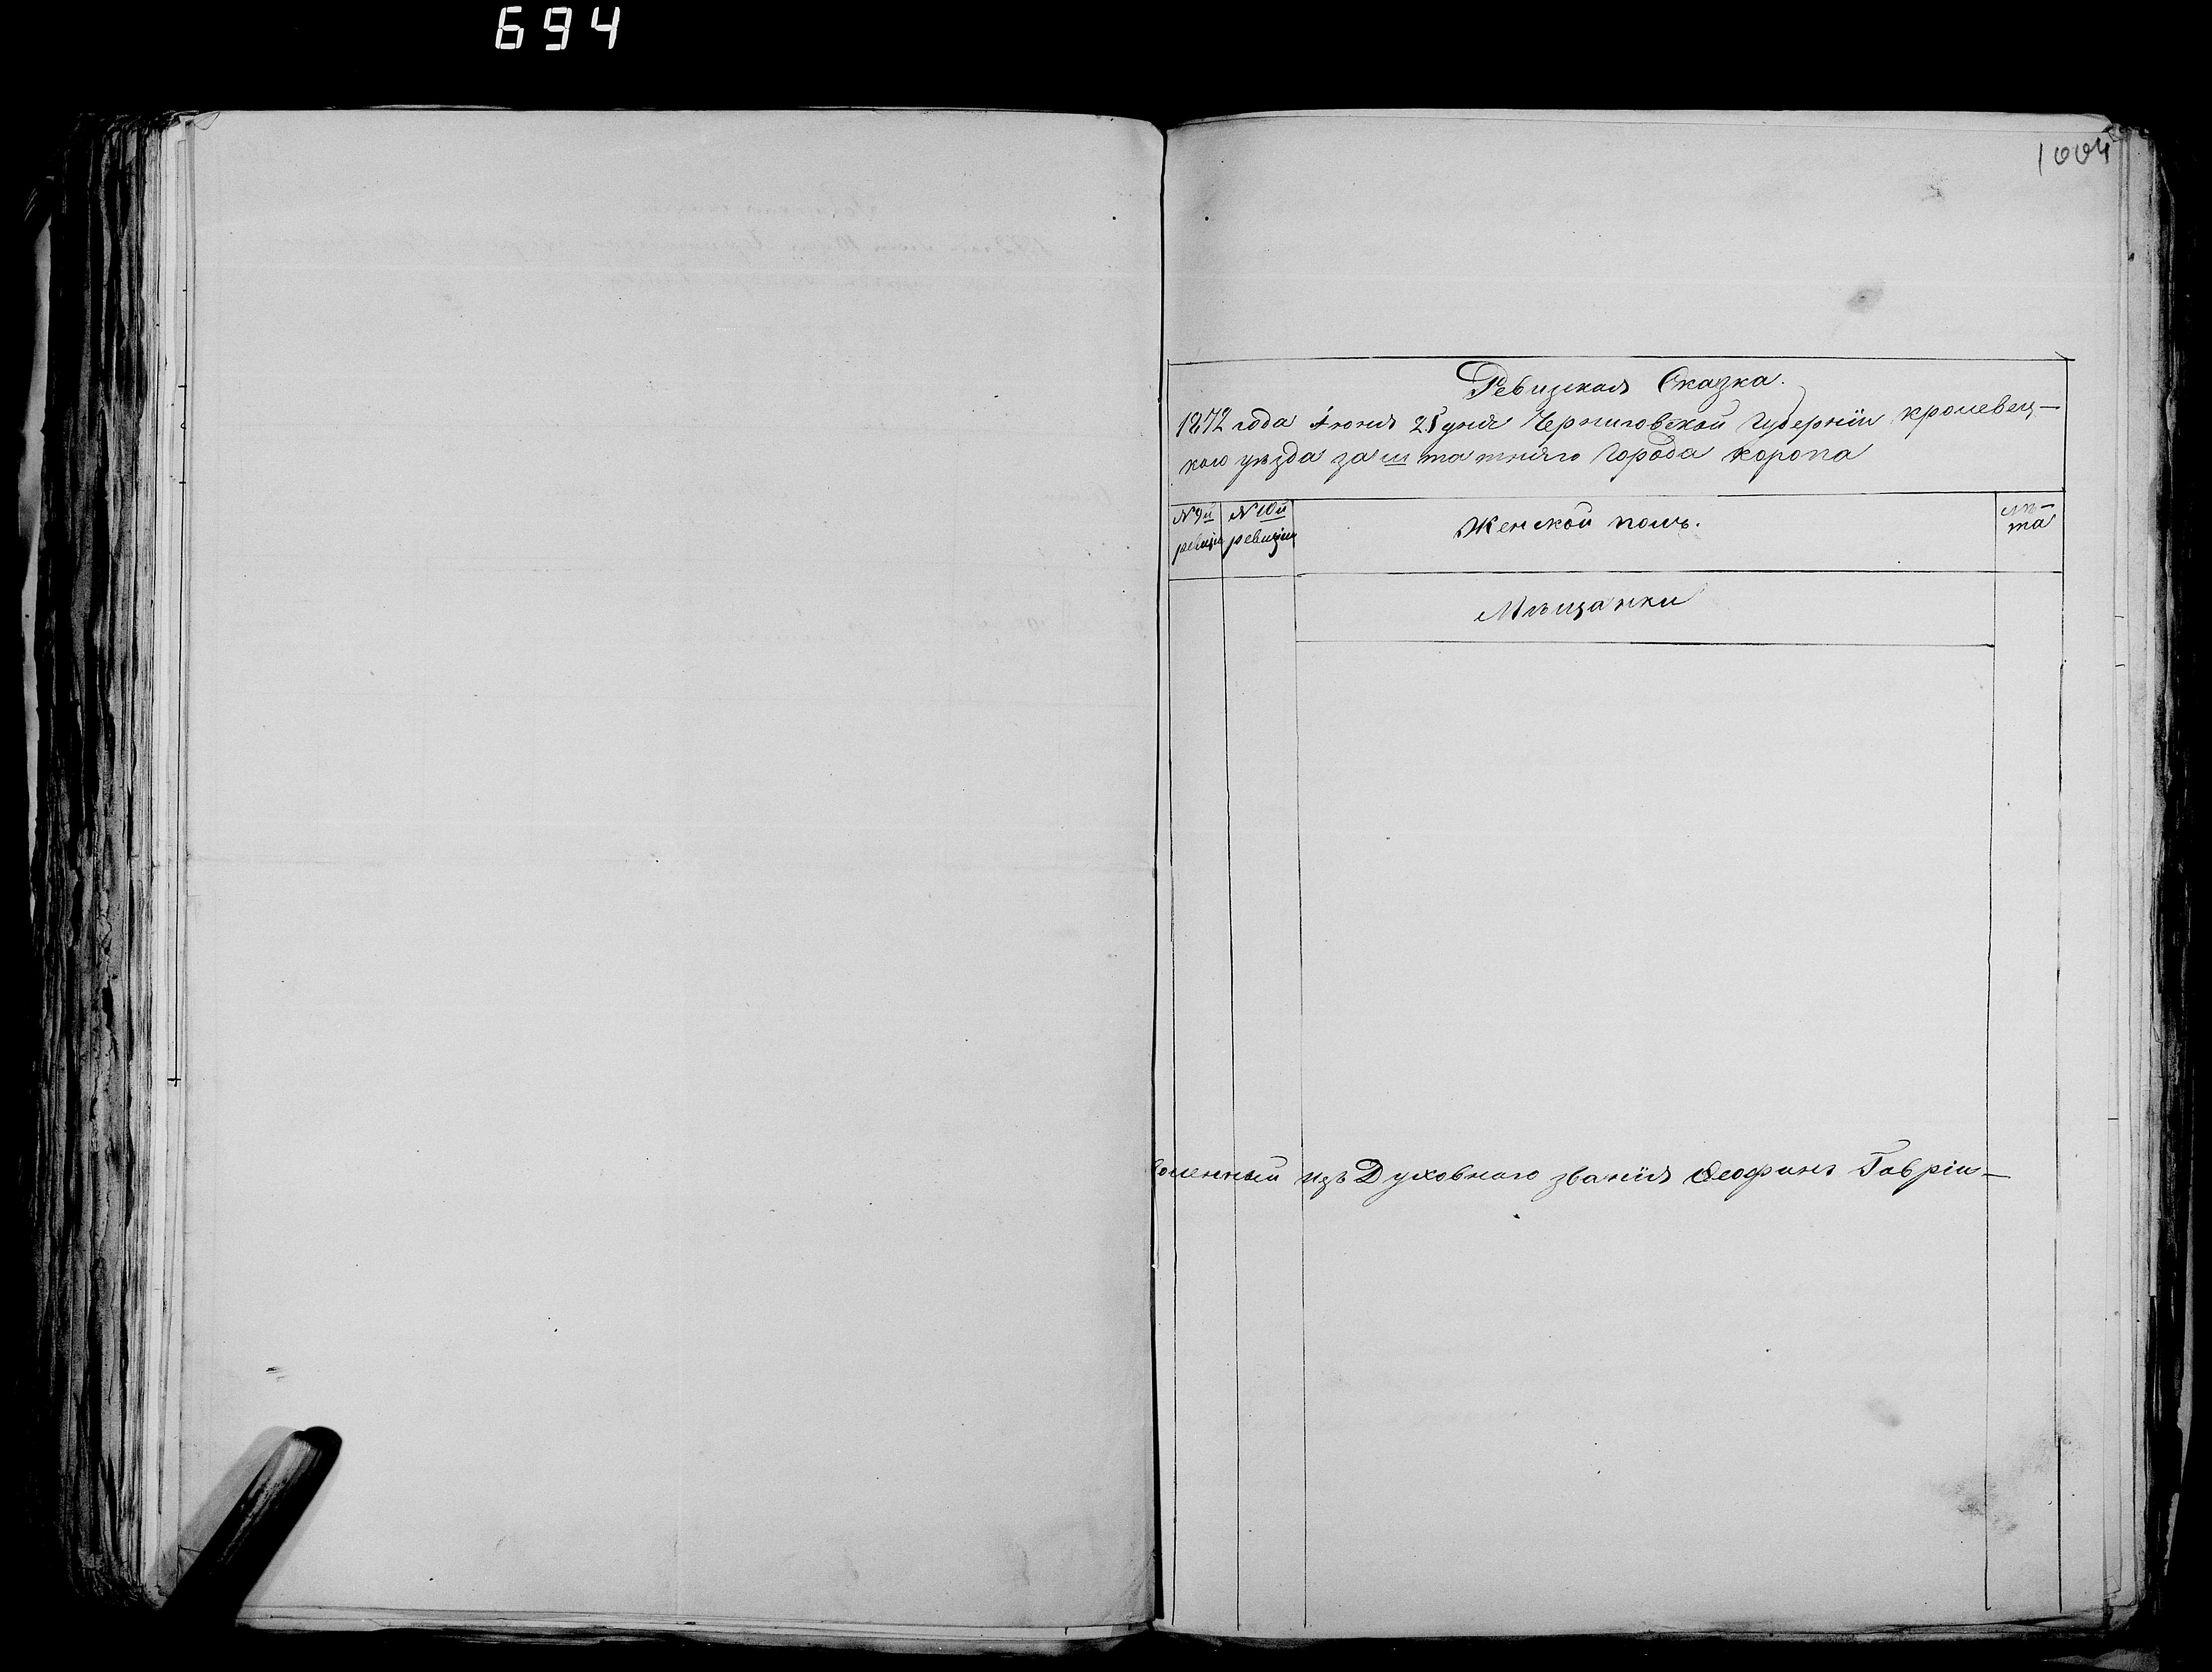 694
1004
Ревизская Сказка.
1872 года Июня 25 дня Черниговской Губерніи Кролевец-
кого уѣзда заштатняго Города Коропа
№ 9й ревизіи
№ 10й ревизіи
Женской полъ.
лѣ-
та
Мѣщанки
оленный изъ Духовнаго званія Феофанъ Гавріи-